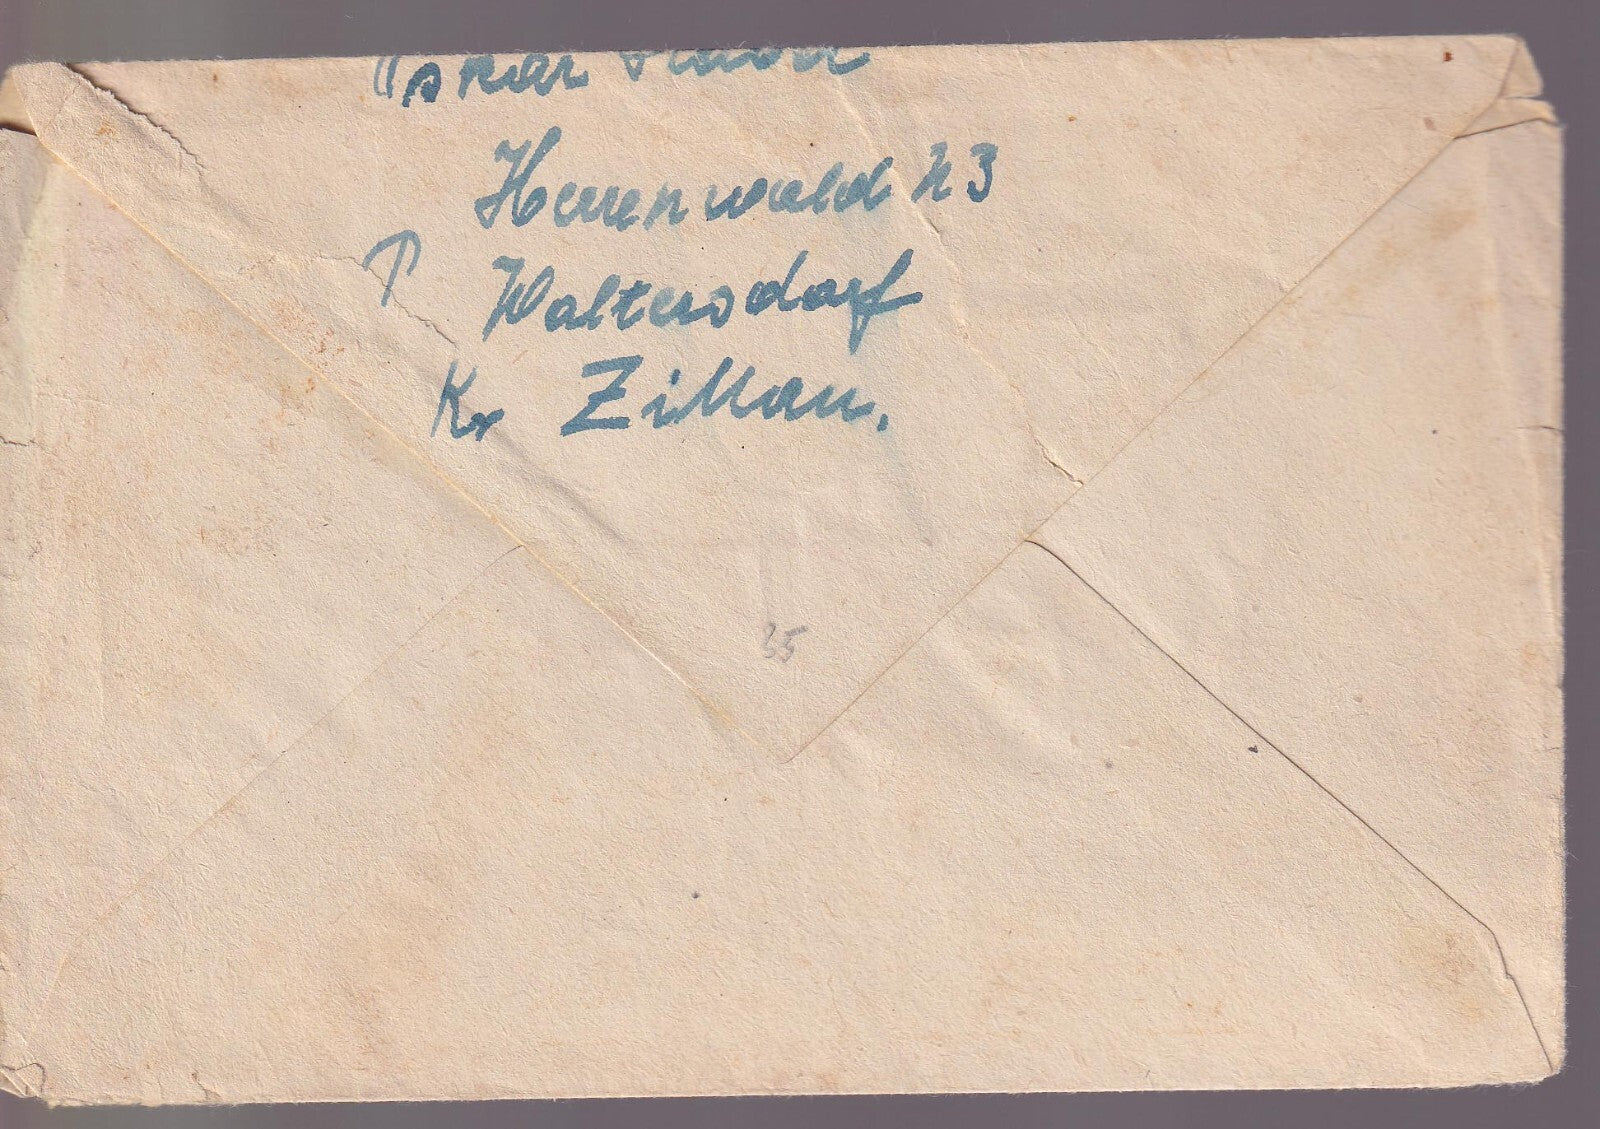 Oskar
Herrenwald 23
P Waltersdorf
Kr Zittau.
35